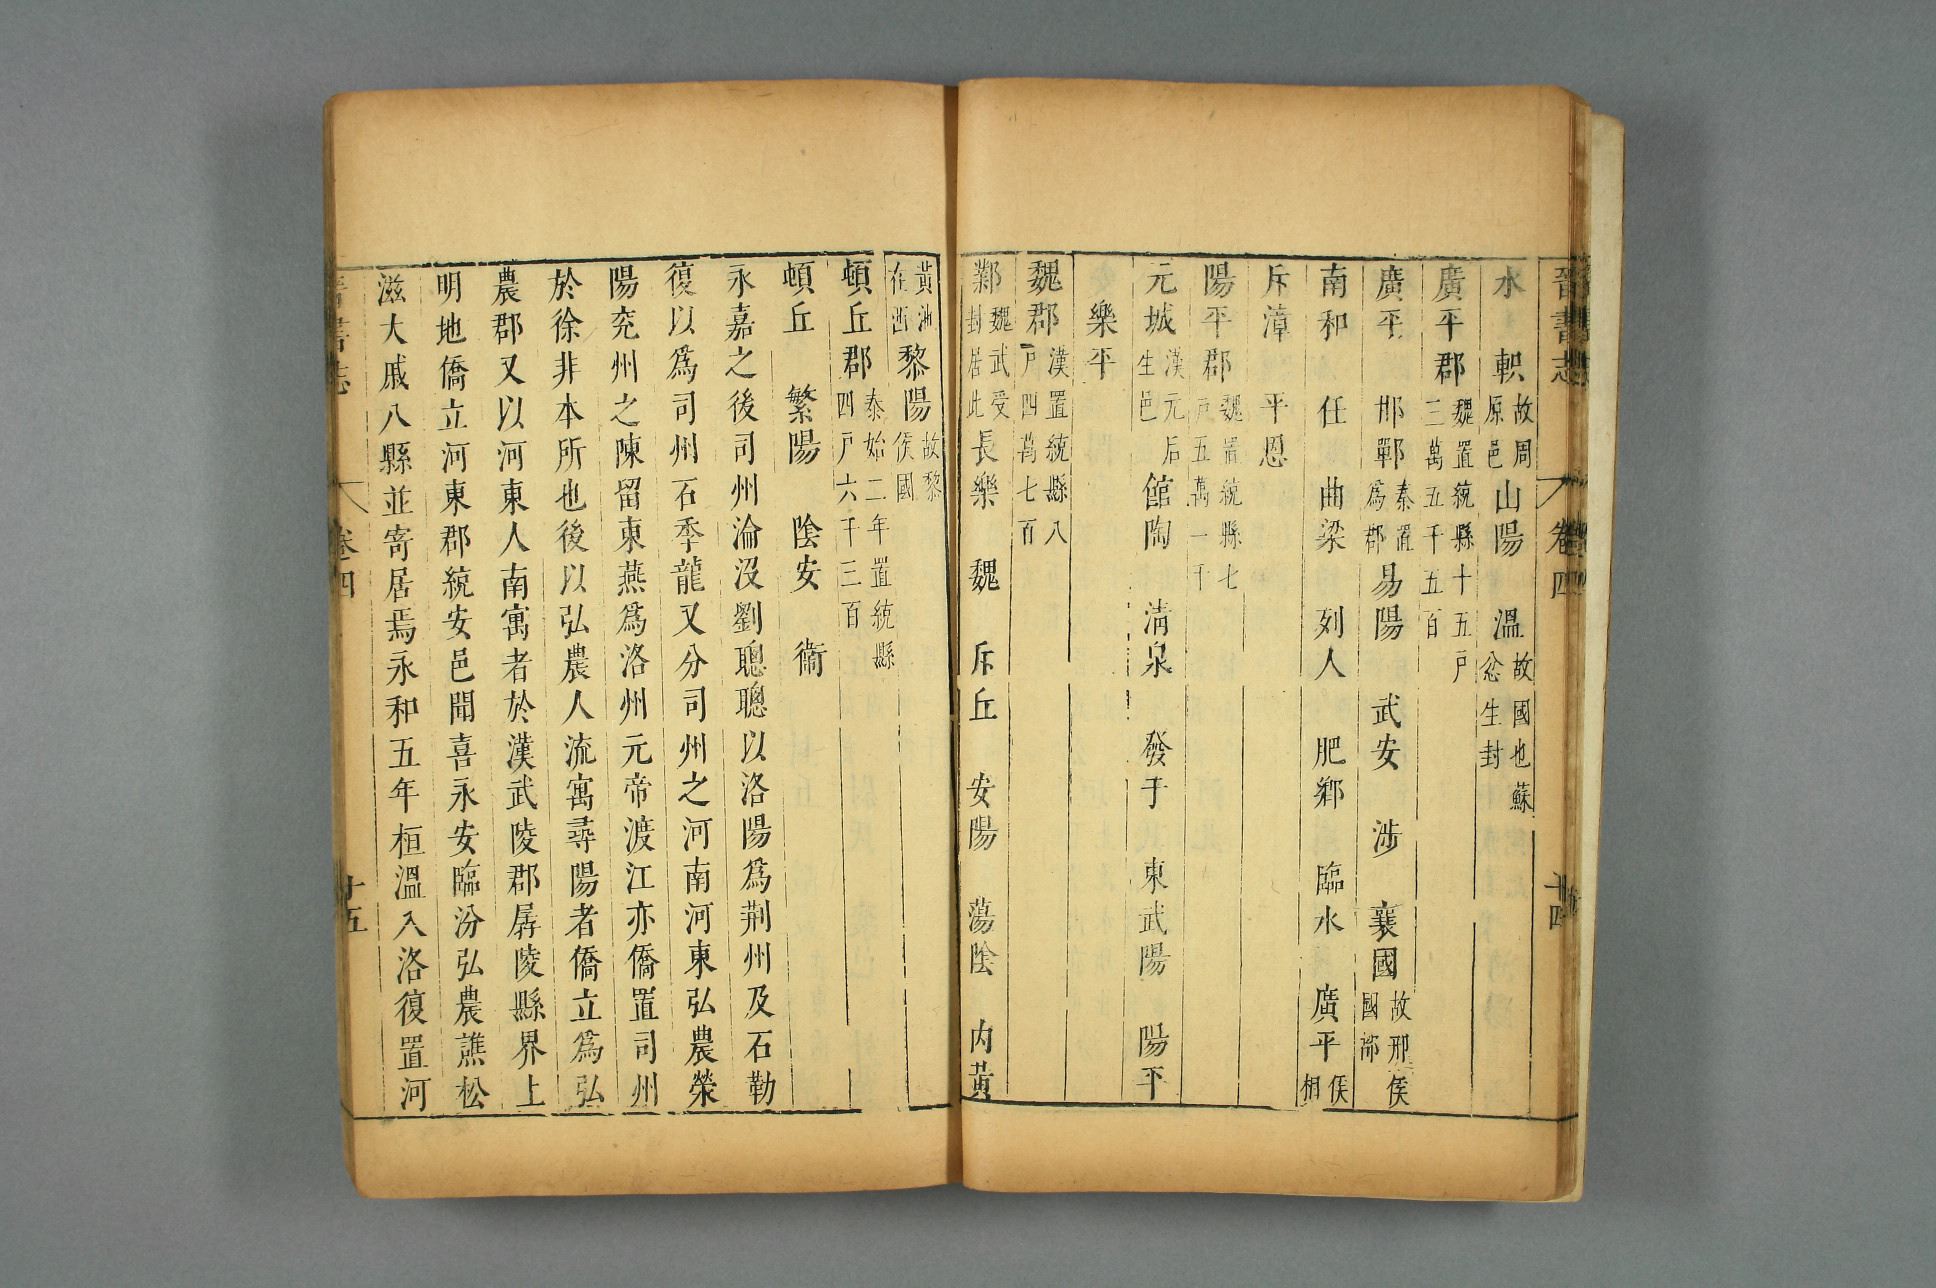 晉書志 卷四 十四
水 軹故周原邑 山陽 溫故國也蘇忿生封
廣平郡魏置統縣十五戶三萬五千五百
廣平 邯鄲秦置爲郡 易陽 武安 涉 襄國故邢侯國都
南和 任 曲梁 列人 肥鄉 臨水 廣平侯相
斥漳 平恩
陽平郡魏置統縣七戶五萬一千
元城漢元后生邑 館陶 清泉 發干 東武陽 陽平
樂平
魏郡漢置統縣八戶四萬七百
鄴魏武受封居此 長樂 魏 斥丘 安陽 蕩陰 內黃
黃池在西 黎陽故黎侯國
頓丘郡泰始二年置統縣四戶六千三百
頓丘 繁陽 陰安 衞
永嘉之後司州淪沒劉聰聰以洛陽爲荆州及石勒
復以爲司州石季龍又分司州之河南河東弘農滎
陽兖州之陳留東燕爲洛州元帝渡江亦僑置司州
於徐非本所也後以弘農人流寓尋陽者僑立爲弘
農郡又以河東人南寓者於漢武陵郡孱陵縣界上
明地僑立河東郡統安邑聞喜永安臨汾弘農譙松
滋大戚八縣並寄居焉永和五年桓溫入洛復置河
晉書志 卷四 十五